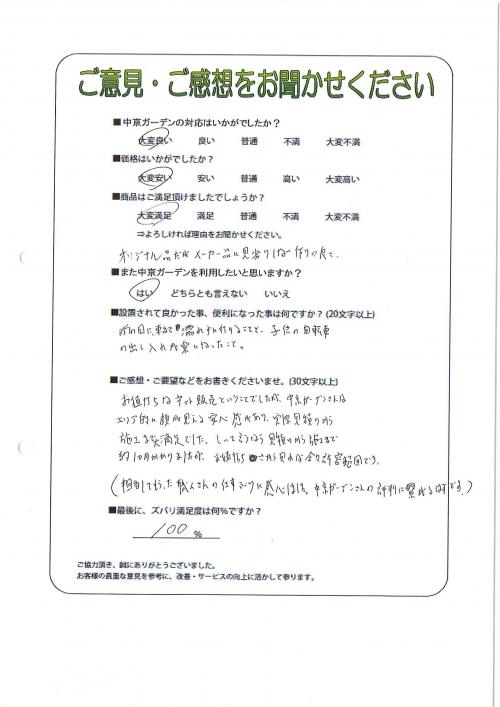 ご意見・ご感想をお聞かせください
■中京ガーデンの対応はいかがでしたか？
大変良い 良い 普通 不満 大変不満
■価格はいかがでしたか？
大変安い 安い 普通 高い 大変高い
■商品はご満足頂けましたでしょうか？
大変満足 満足 普通 不満 大変不満
⇒よろしければ理由をお聞かせください。
オリジナル品だがメーカー品に見劣りしない作りで
■また中京ガーデンを利用したいと思いますか？
はい どちらとも言えない いいえ
■設置されて良かった事、便利になった事は何ですか？(20文字以上)
雨の日に車まで濡れずに行けることと、子供の自転車
の出し入れが楽になったこと。
■ご感想・ご要望などをお書きくださいませ。(30文字以上)
お値打ちなネット販売ということでしたが、中京ガーデンさんは
エリア的に顔が見える安心感があり、実際見積りから
施工まで大満足でした。 見積りから施工まで
約1ヵ月かかりましたが、お値打ちさから見れば全々許容範囲です。
(担当して下さった職人さんの仕事ぶりに感心 。中京ガーデンさんの評判に繋がるはずです。)
■最後に、ズバリ満足度は何％ですか？
100 %
ご協力頂き、誠にありがとうございました。
お客様の貴重な意見を参考に、改善・サービスの向上に活かして参ります。